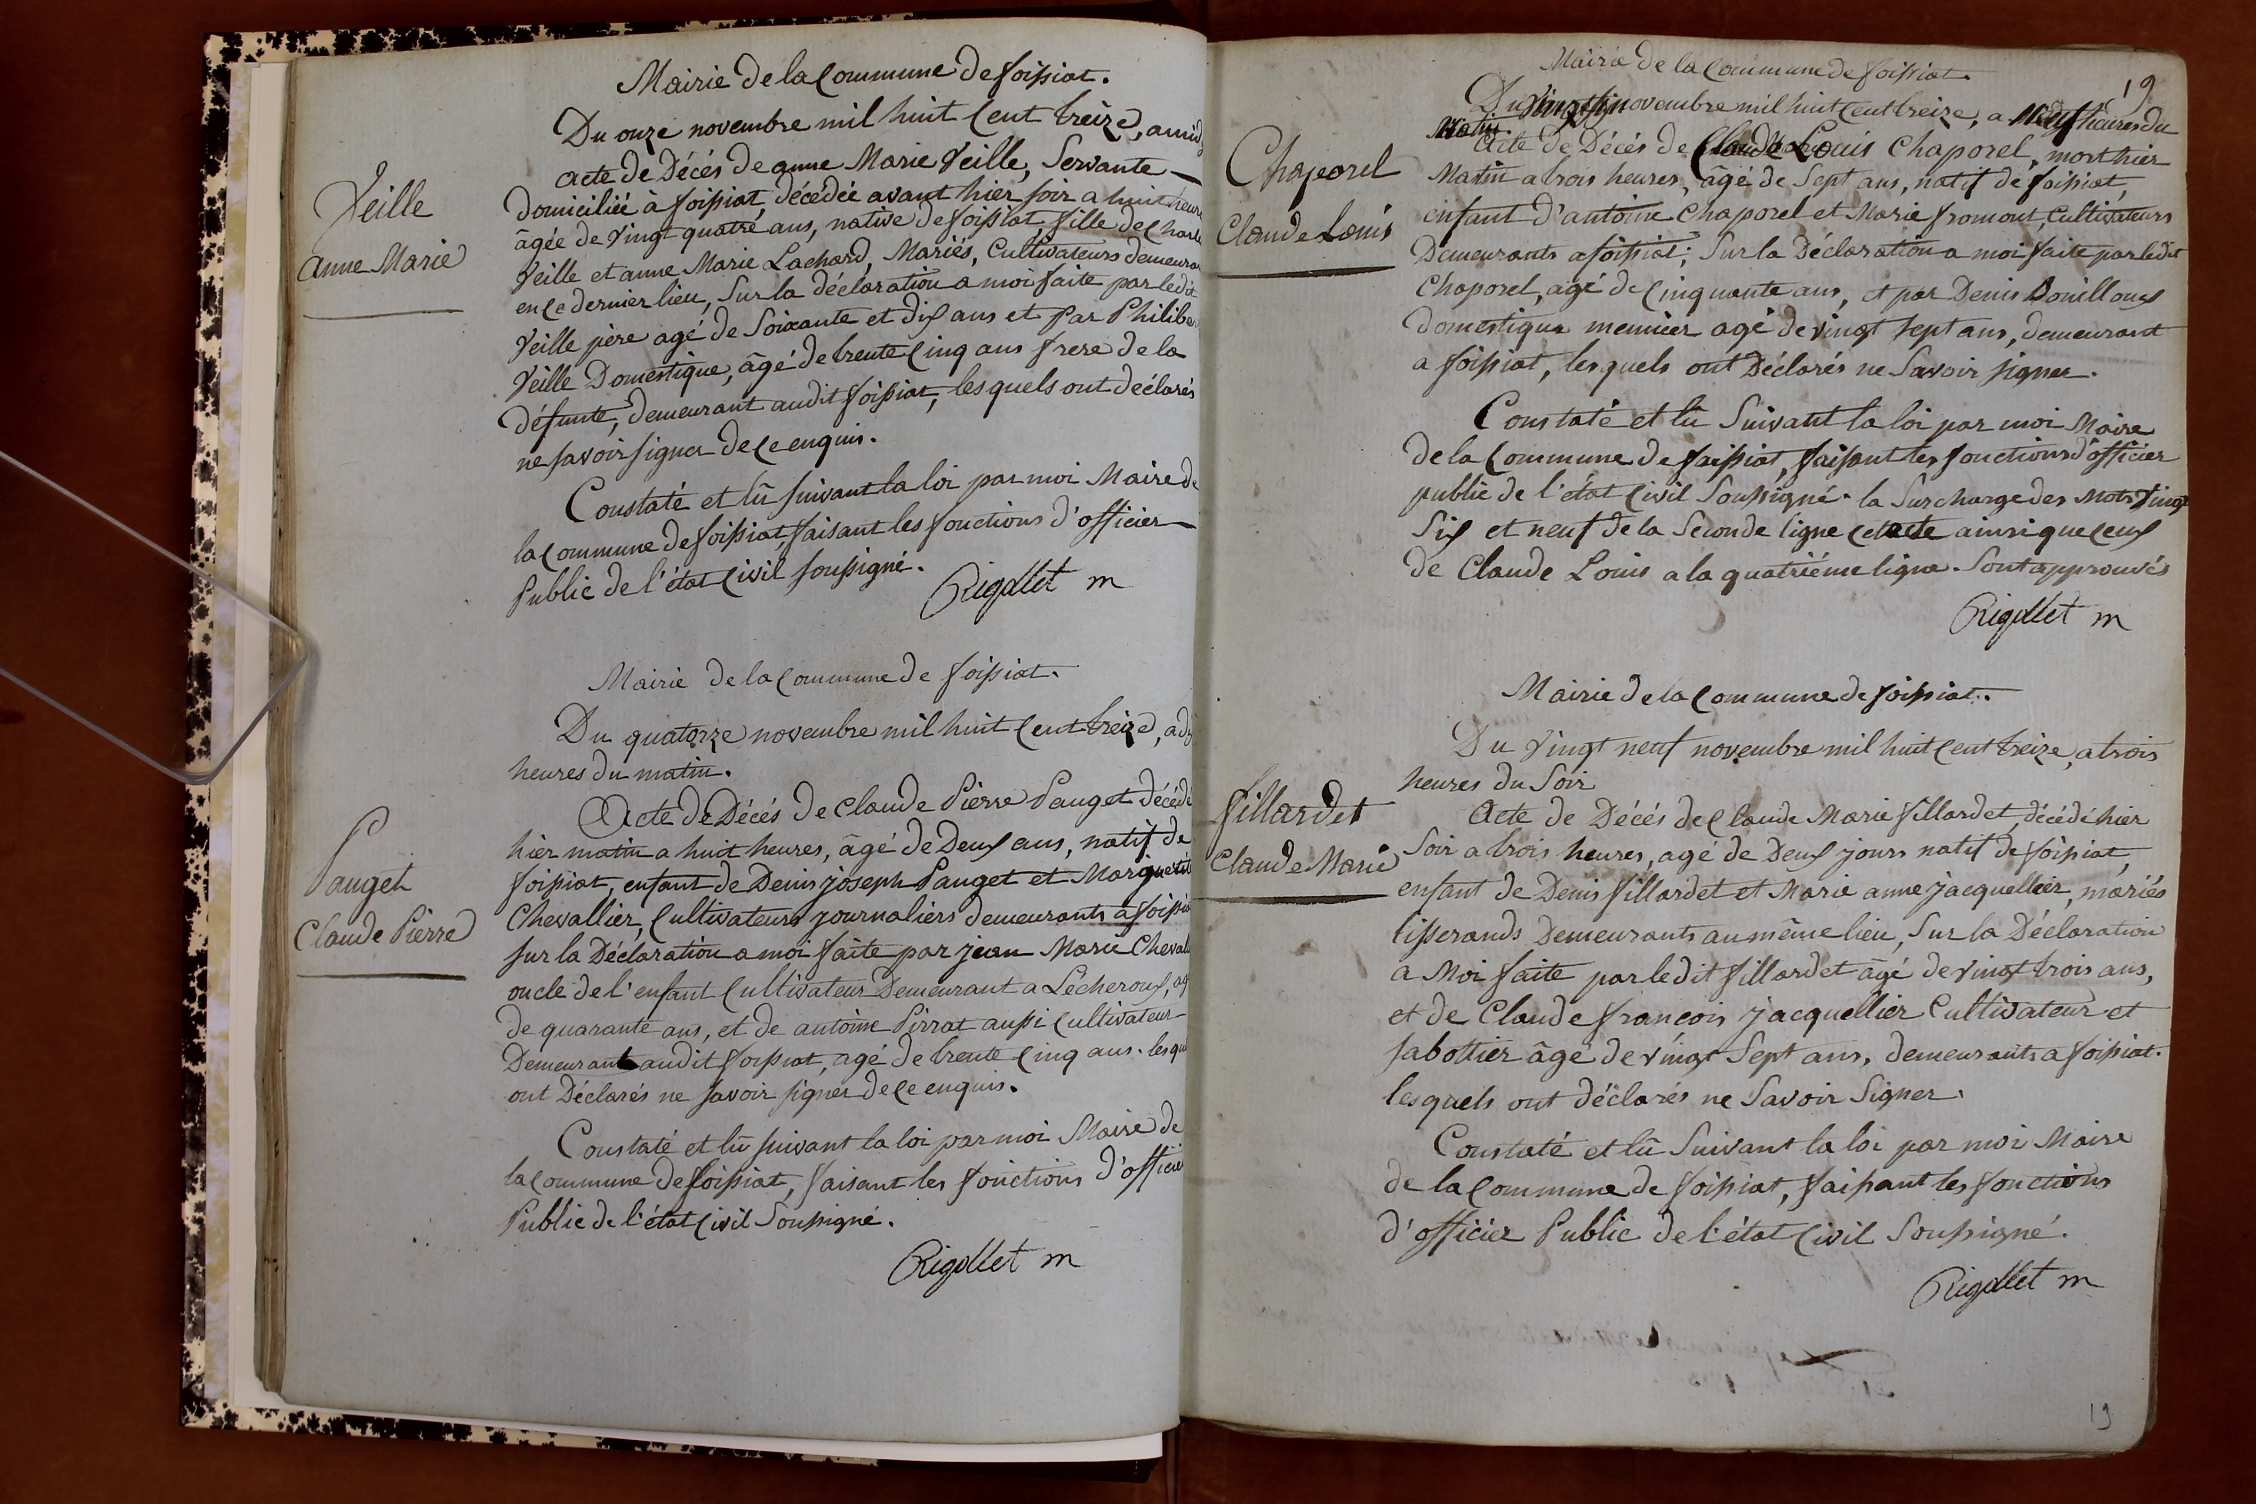 Mairie de la Commune de foissiat.
Du onze novembre mil huit Cent treize, a midy
Veille
Anne Marie
acte de Décés de anne Marie Veille, Servante
domiciliée à foissiat, décédée avant hier soir a huit heures
âgée de vingt quatre ans, native de foissiat, fille de Charle
Veille et anne Marie Lachard, Mariés, Cultivateurs demeuran
en ce dernier lieu, Sur la déclaration a moi faite par ledit
Veille père agé de Soixante et dix ans et Par Philiber
Veille Domestique, âgé de trente Cinq ans frere de la
défunte, demeurant audit foissiat, les quels ont déclarés
ne savoir signer de ce enquis.
Constaté et lû suivant la loi par moi Maire de
la Commune de foissiat, faisant les fonctions d'officier
Public de l'état Civil soussigné.
Rigollet m
Mairie de la Commune de foissiat.
Du quatorze novembre mil huit Cent treize, a dix
heures du matin.
Pauget
Claude Pierre
Acte de Décés de Claude Pierre Pauget décédé
hier matin a huit heures, âgé de Deux ans, natif de
foissiat, enfant de Denis joseph Pauget et Marguerite
Chevallier, Cultivateurs journaliers demeurants a foissia
sur la Déclaration a moi faite par jean Marie Cheval
oncle de l'enfant Cultivateur Demeurant a Lécheroux, ag
de quarante ans, et de antoine Pirrat aussi Cultivateur
Demeurant audit foissiat, agé de trente Cinq ans. les qu
ont Déclarés ne savoir signer de ce enquis.
Constaté et lû suivant la loi par moi Maire de
la Commune de foissiat, faisant les fonctions d'officier
Public de l'état Civil Soussigné.
Rigollet m
19
Mairie de la Commune de foissiat.
Du Vingt six novembre mil huit Cent treize, a Neuf heures du
Matin.
Chaporel
Claude Louis
Acte de Décés de Claude Louis Chaporel, mort hier
Matin a trois heures, agé de Sept ans, natif de foissiat,
enfant d'antoine Chaporel et Marie fromont, Cultivateurs
Demeurants a foissiat; Sur la Déclaration a moi faite par ledit
Chaporel, agé de Cinquante ans, et par Denis Bouilloux
domestique meunier agé de vingt sept ans, demeurant
a foissiat, les quels ont Déclarés ne Savoir signer.
Constaté et lû Suivant la loi par moi Maire
de la Commune de foissiat, faisant les fonctions d'officier
public de l'état Civil Soussigné. la Surcharge des Mots Vingt
Six et neuf de la Seconde ligne ainsi que ceux
de Claude Louis a la quatriéme ligne. Sont approuvés
Rigollet m
Mairie de la Commune de foissiat.
Du Vingt neuf novembre mil huit Cent treize, a trois
heures du Soir
fillardet
Claude Marie
Acte de Décés de Claude Marie fillardet, décédé hier
Soir a trois heures, agé de Deux jours natif de foissiat,
enfant de Denis fillardet et Marie anne jacquellier, mariés
tisserands Demeurants au même lieu, Sur la Déclaration
a Moi faite par ledit fillardet âgé de vingt trois ans,
et de Claude françois jacquellier Cultivateur et
sabottier âgé de vingt Sept ans, demeurants a foissiat.
lesquels ont déclarés ne Savoir Signer.
Constaté et lû Suivant la loi par moi Maire
de la Commune de foissiat, faisant les fonctions
d'officier Public de l'état Civil Soussigné.
Rigollet m
19